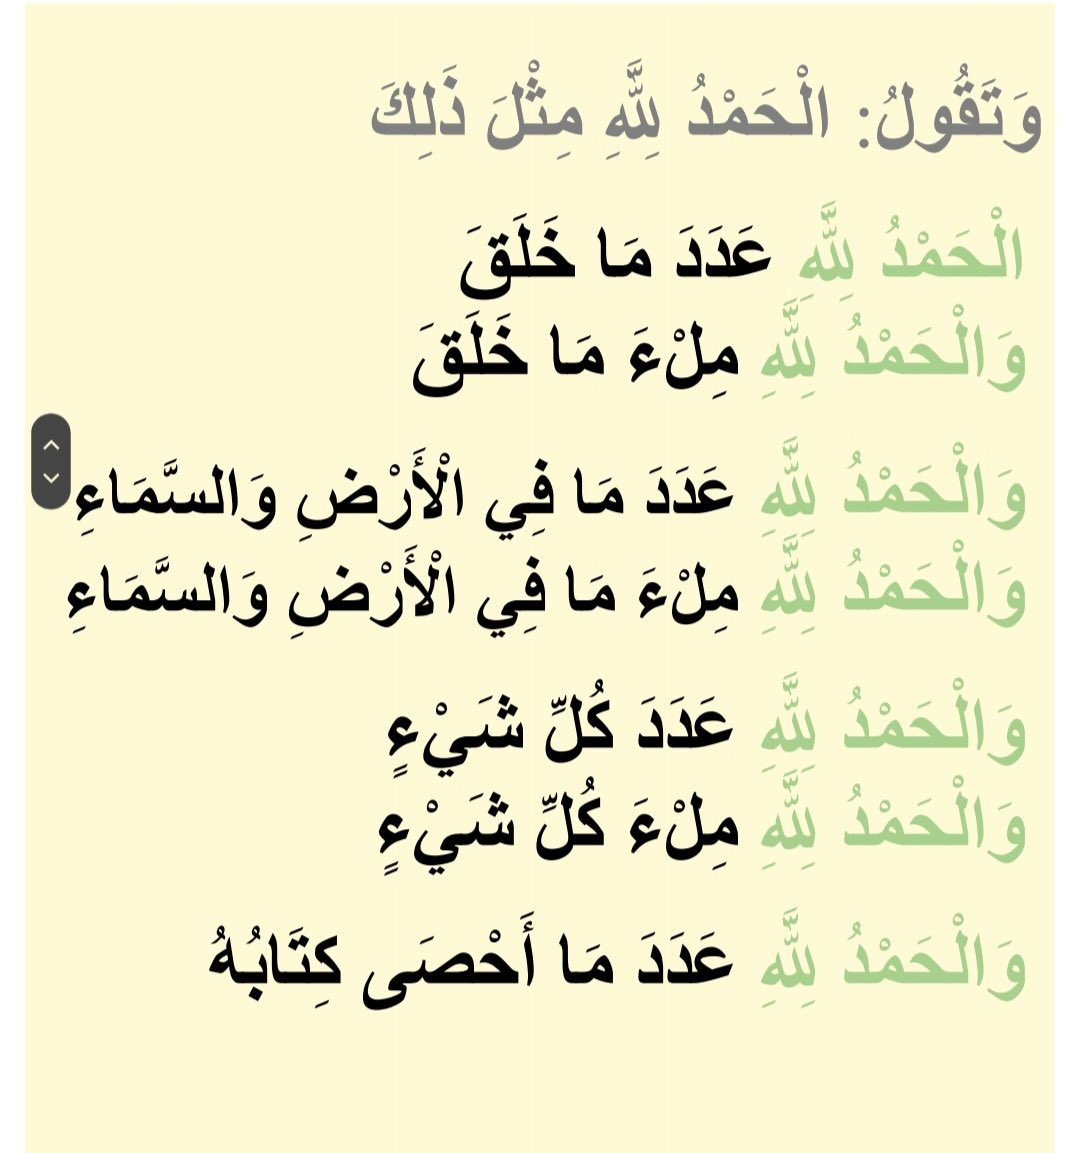 وَتَقُولُ: الْحَمْدُ لِلَّهِ مِثْلَ ذَلِكَ
الْحَمْدُ لِلَّهِ عَدَدَ مَا خَلَقَ
وَالْحَمْدُ لِلَّهِ مِلْءَ مَا خَلَقَ
وَالْحَمْدُ لِلَّهِ عَدَدَ مَا فِي الْأَرْضِ وَالسَّمَاءِ
وَالْحَمْدُ لِلَّهِ مِلْءَ مَا فِي الْأَرْضِ وَالسَّمَاءِ
وَالْحَمْدُ لِلَّهِ عَدَدَ كُلِّ شَيْءٍ
وَالْحَمْدُ لِلَّهِ مِلْءَ كُلِّ شَيْءٍ
وَالْحَمْدُ لِلَّهِ عَدَدَ مَا أَحْصَى كِتَابُهُ